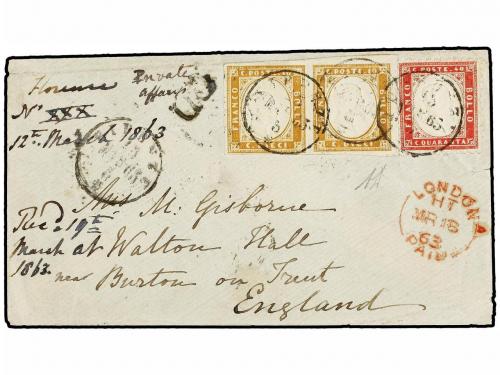 Florence
Private
affairs
No XXX
12th March 1863
C. POSTE. 10
FRANCO
BOLLO
C. DIECI
C. POSTE. 10
FRANCO
BOLLO
C. DIECI
C. POSTE 40
FRANCO
BOLLO
C. QUARANTA
63
PD
LONDON
HT
MR 16
63
PAID
Miss M. Gisborne
Rec'd 19th
March
1863.
at Walton Hall
near Burton on Trent
England